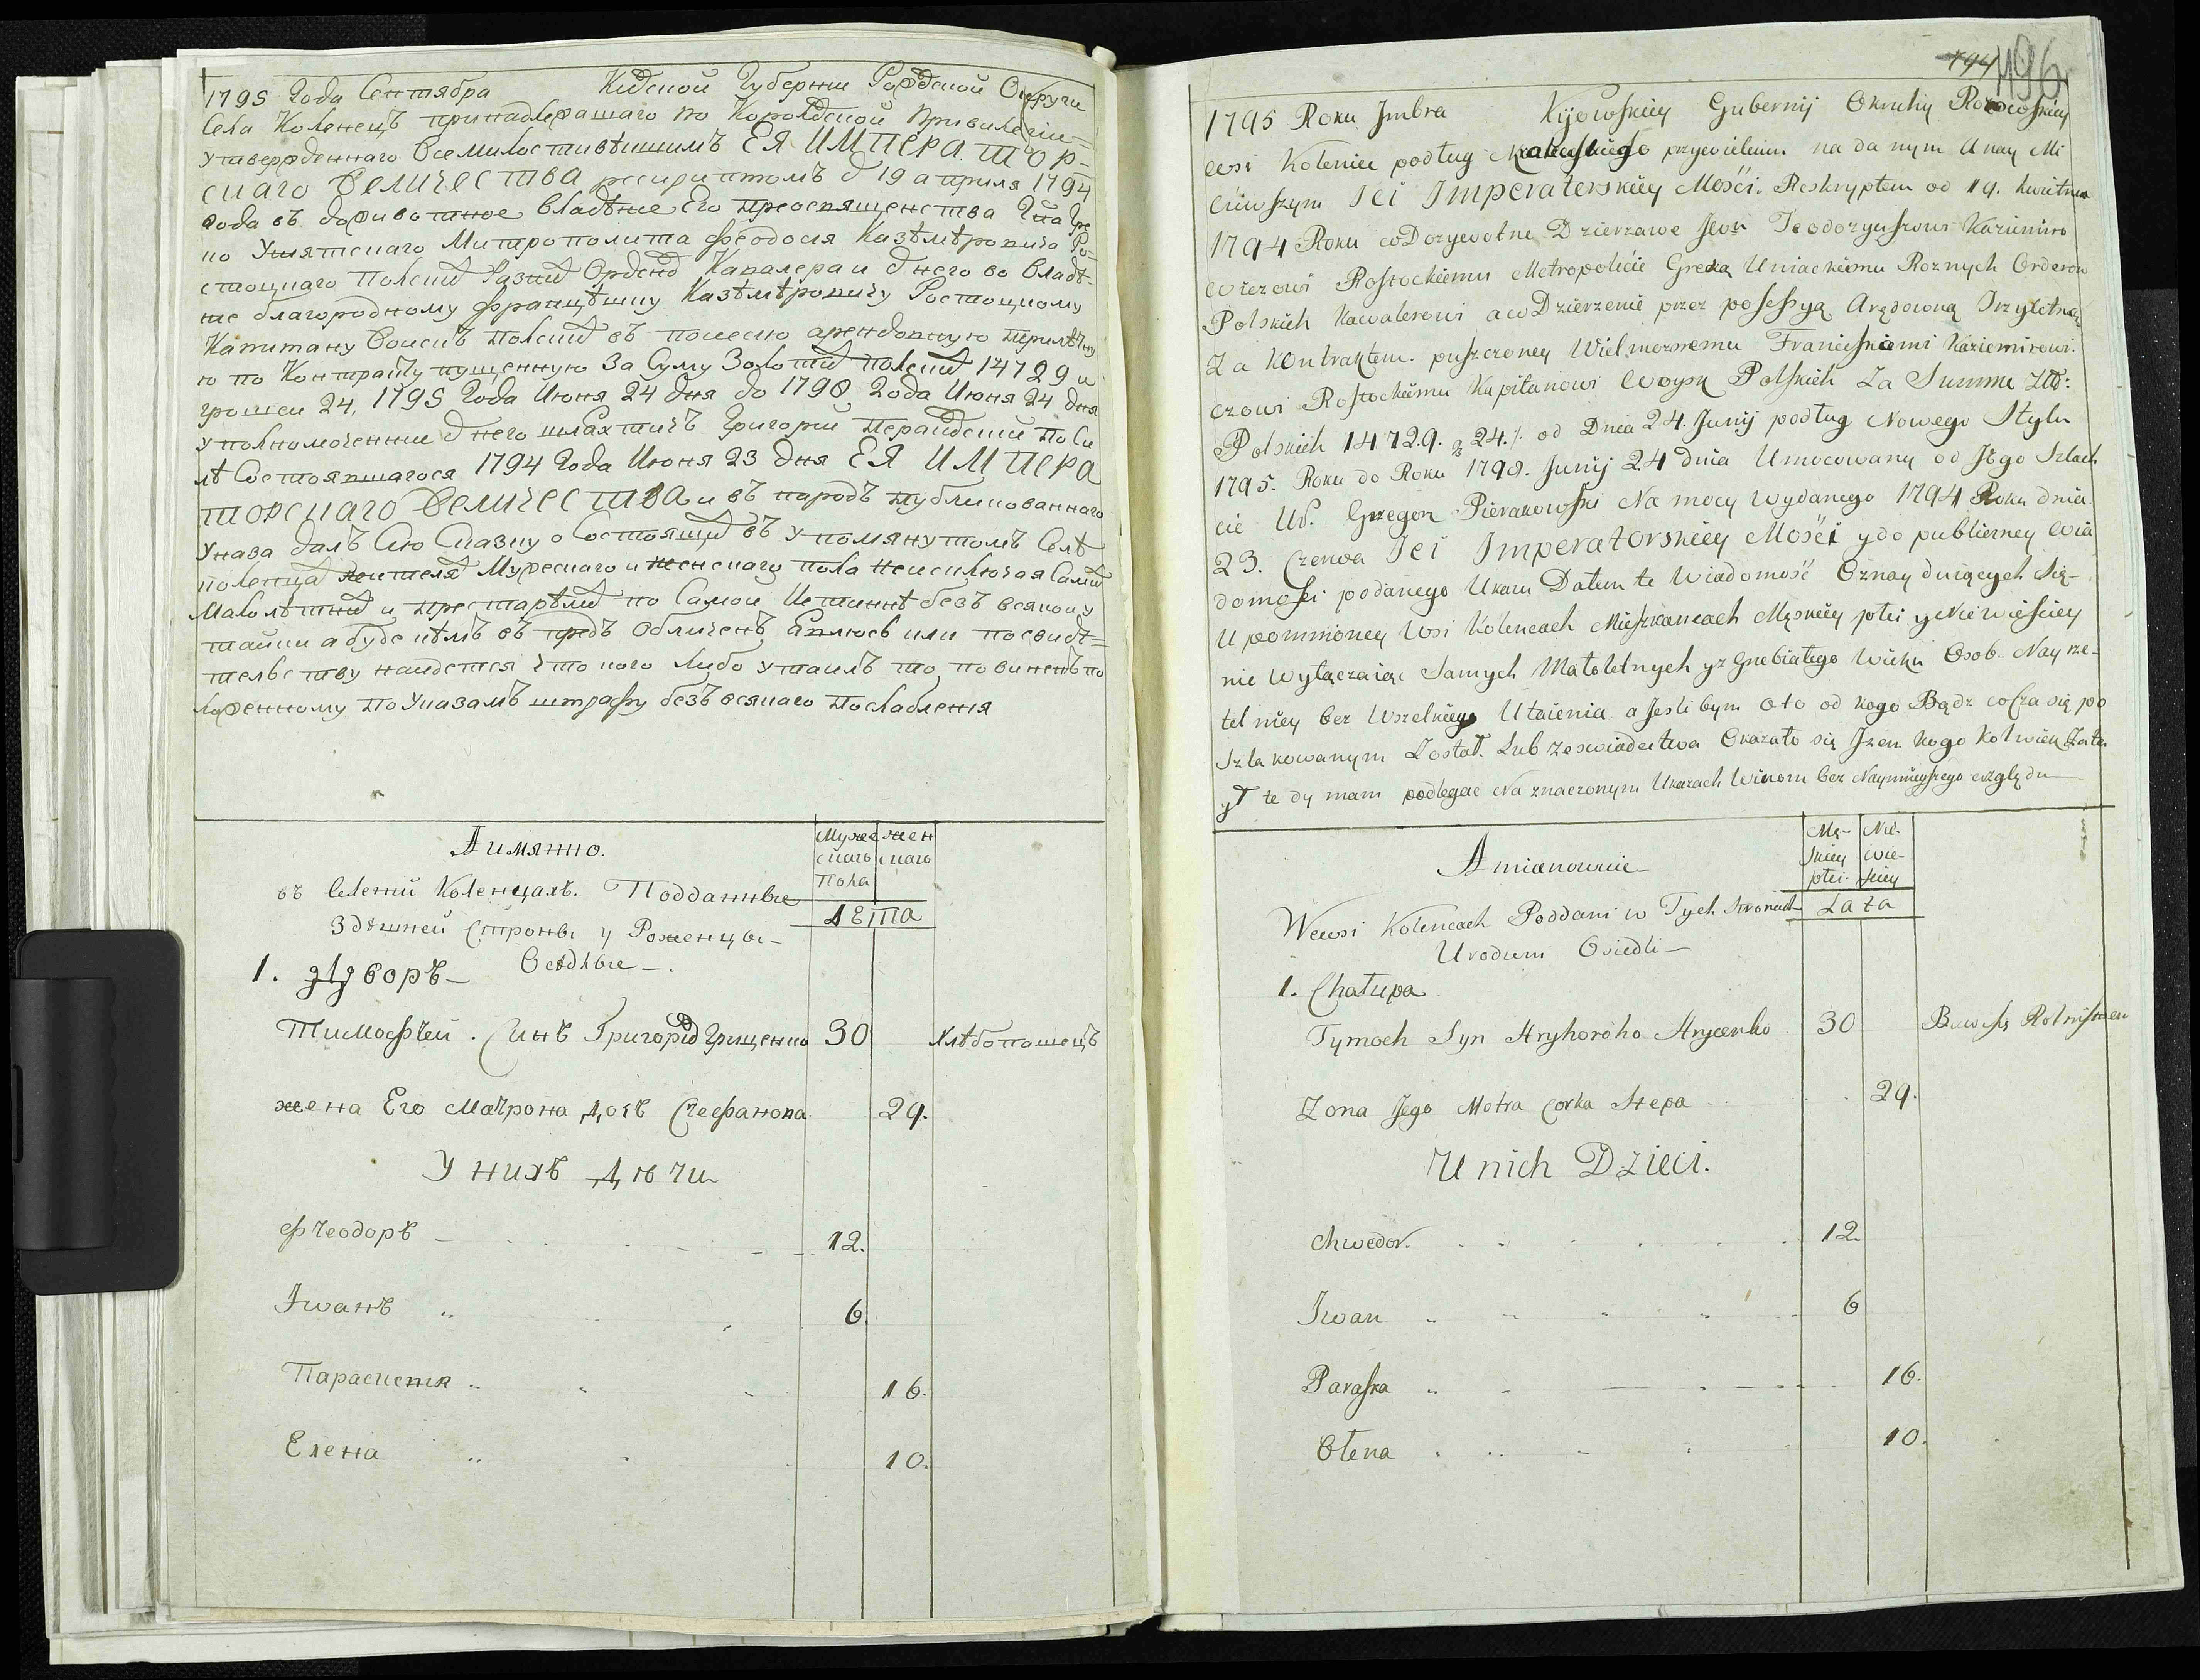 1795 Года Сентября Киевской Губернии Округи
Села Коленецъ принадлежащаго по Королевской Привилегіи
утвержденнаго Всемилостивѣишимъ ЕЯ ИМПЕРАТОР-
скаго Величества рескриптомъ от 19 априля 1794
года въ доживотное владѣние Его преосвященства Гре
ко Униятского Митрополита Феодосия Казѣмѣровича Ро-
стоцкаго полских разних Орденов Кавалера и от него во владѣ-
ние благородному Францѣшку Казѣмѣровичу Ростоцкому
Капитану Воискъ полских въ посесию арендовную трилѣтну
ю по Контракту пущенную За Суму Золотих полских 14729 и
грошеи 24, 1795 Года Июня 24 дня до 1798 Года Июня 24 дня
уполномоченний от него шляхтичъ Григорий по Си
лѣ Состоявшагося 1794 Года Июня 23 дня ЕЯ ИМПЕРА
ТОРСКАГО Величества и въ народъ публикованнаго
Указа далъ Сию Сказку о Состоящих въ упомянутомъ Селѣ
коленцах жителях Мужескаго и женскаго пола неисключая Самих
Малолѣтних и престарѣлих по Самои Истиннѣ безъ всякои
таики а буде кѣмъ въ предъ Обличенъ явлюсь или по свидѣ-
телству наидется что кого Либо утаилъ то повиненъ по
ложенному по Указамъ штрафу безъ всякаго послабления
А имянно.
Муже
скаго
Пола
жен
скаго
въ Селенѣи Коленцахъ. Подданные
Лѣта
Здѣшней Стороны Уроженцы-
Осѣдлые -.
1. Дворъ-
Тимофѣй. Синъ Григория Грищенко 30 Хлѣбопашецъ
жена Его Матрона дочь Стефанова 29.
У нихъ дѣти
Фѣеодоръ 12.
Иванъ 6.
Параскевия 16.
Елена 10.
194 496.
1795 Roku Kijowskiey Gubernij Okruhy
wsi Koleniec podług przywileiu na da nym Unay Mi
ciwszym Iei Imperatorskiey Mości. Reskryptem od 19. kwitnia
1794 Roku w Dozywotne Dzierzawe Jego Teodozyuszowi Kazimiro
wiczowi Rostockiemu Metropolicie Greka Uniackiemu Roznych Orderow
Polskich Kawalerowi a w Dzierzenie przez possessyą Arędowną Trzyletną
Za Kontraktem. puszczoney Wielmoznemu Kaziemirowi
czowi Rostockiemu Kapitanowi Woysk Polskich Za Summe Złł:
Polskich 14729. g 24. od Dnia 24. Junij podług Nowego Stylu
1795. Roku do Roku 1798. Junij 24 dnia Umocowany od Jego Szlach
cic Ur. Grzegorz Pierakowski Na mocy Wydanego 1794 Roku dnia
23. Czerwca Iei Imperatorskiey Mości y do publiczney wia
domości podanego Ukazu Datem te Wiadomość Oznay duiących się
U pomnioney Wsi Kolencach Mieszkancach Męskiey płci y Niewieściey
nie Wyłączaiąc Samych Małoletnych y zgrzebiałego Wieku Osob. Nay rze-
telniey bez Wszelkiego Utaienia a Jesli bym oto od kogo Bądz co
szlakowanym Został. Lub ze swiadectwa Okazało się Jzem kogo kolwiek Zata
ył te dy mam podlegac Na znaczonym Ukazach Winom bez Naymnieyszego względu
Amianowicie
Mę-
skiey
płci
Nie-
wie-
sciey
Wewsi Kolencach Poddani w Tych Stronach
Lata
Urodzeni Osiedli -
1. Chałupa
Tymoch Syn Hryhoroho Hrycenko 30 Bawi się Rolnistwem
Zona Jego Motra Corka Stepa 29.
U nich Dzieci.
Chwedor. 12.
Iwan 6
Paraska 16.
Ołena 10.